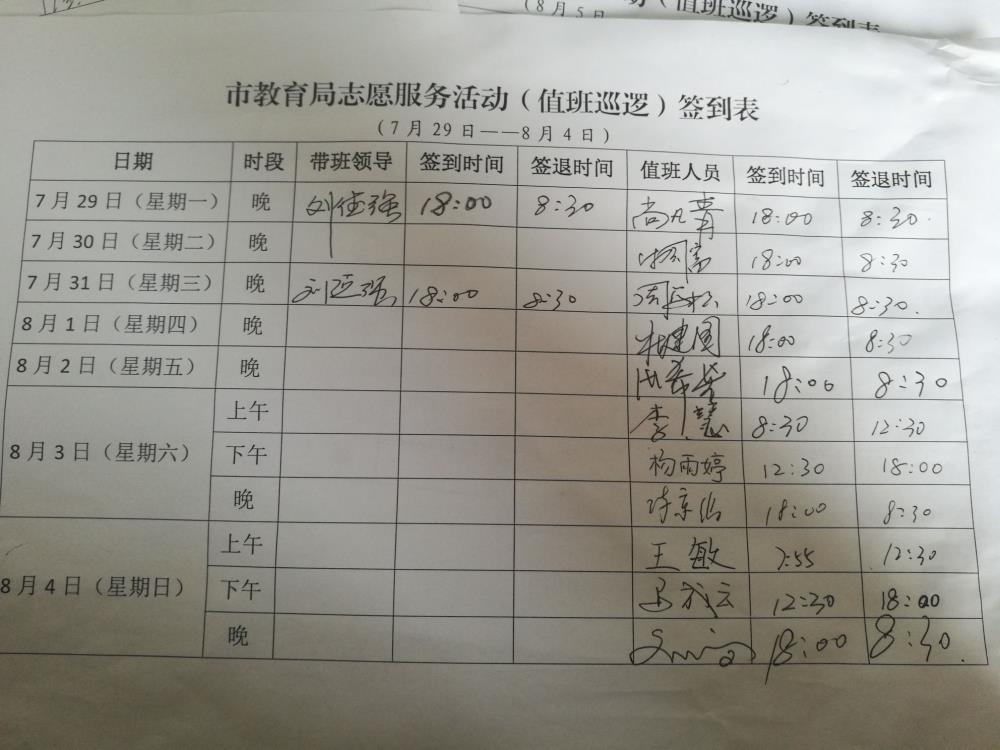 (8月5日
(值班巡逻)签到表
市教育局志愿服务活动(值班巡逻)签到表
(7月29日——8月4日)
日期 时段 带班领导 签到时间 签退时间 值班人员 签到时间 签退时间
7月29日(星期一) 晚 18:00 8:30 18:00 8:30
7月30日(星期二) 晚 18:00 8:30
7月31日(星期三) 晚 18:00 8:30 18:00 8:30.
8月1日(星期四) 晚 林建国 18:00 8:30
8月2日(星期五) 晚 18:00 8:30
8月3日(星期六) 上午 李慧 8:30 12:30
下午 杨雨婷 12:30 18:00
晚 18:00 8:30
8月4日(星期日) 上午 王敏 7:55 12:30
下午 12:30 18:00
晚 18:00 8:30.